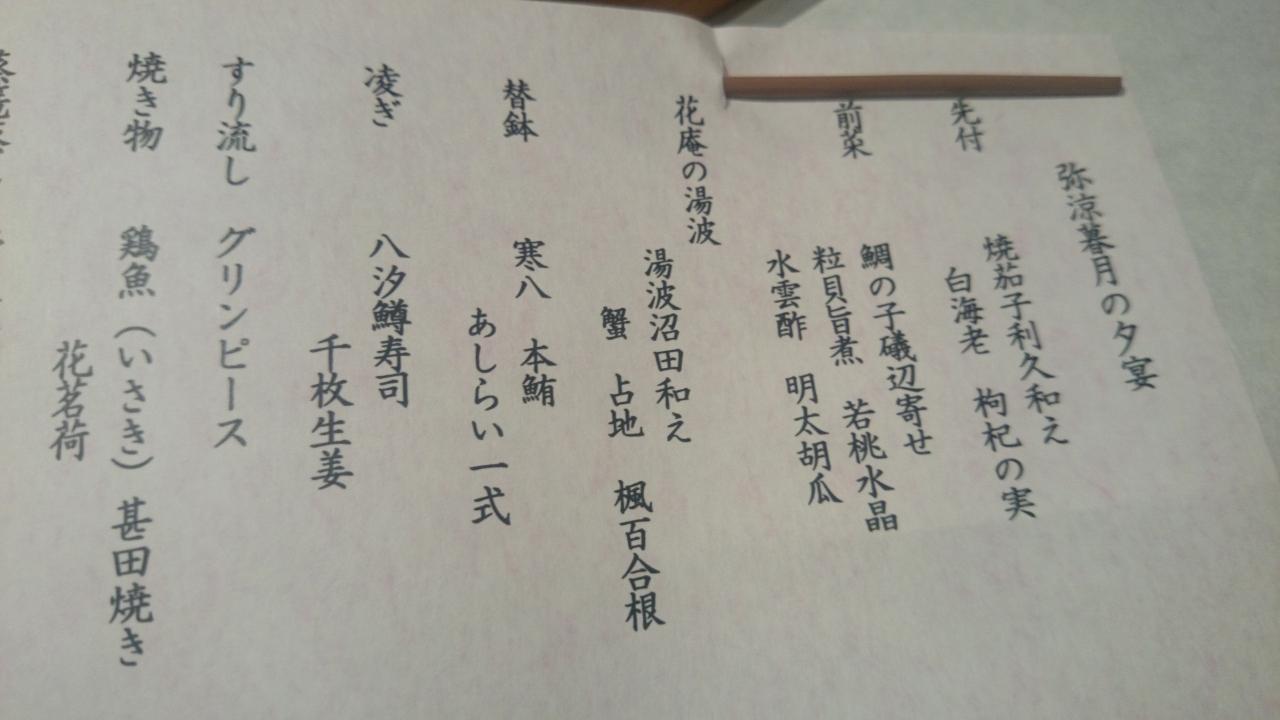 弥涼暮月の夕宴
先付
焼茄子利久和え
白海老　枸杞の実
前菜
鯛の子磯辺寄せ
粒貝旨煮　若桃水晶
水雲酢　明太胡瓜
花庵の湯波
湯波沼田和え
蟹　占地　楓百合根
替鉢
寒八　本鮪
あしらい一式
凌ぎ
八汐鱒寿司
千枚生姜
すり流し　グリンピース
焼き物　鶏魚（いさき）甚田焼き
花茗荷